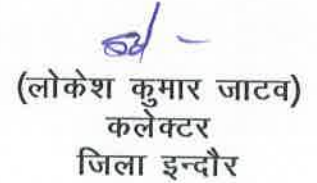 (लोकेश कुमार जाटव)
कलेक्टर
जिला इन्दौर